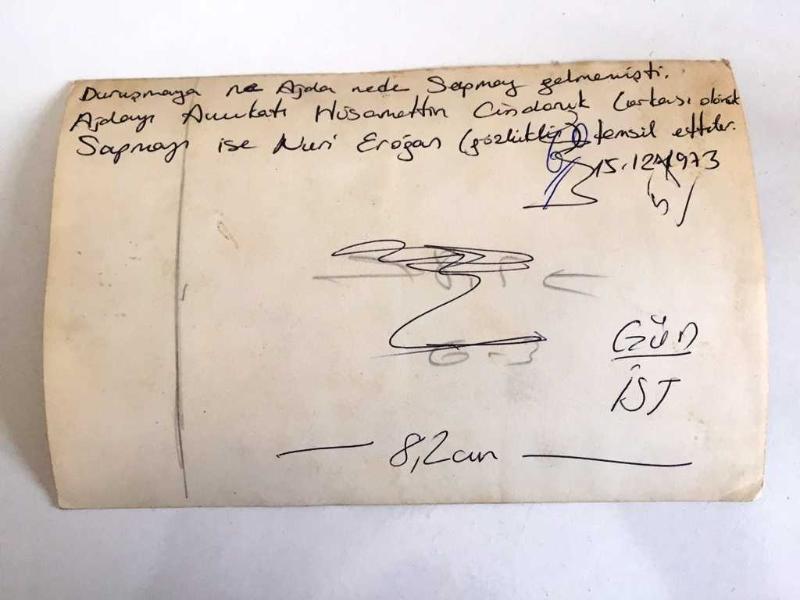 Duruşmaya ne Ajda nede Sapmaz gelmemişti.
Ajdayı Avukatı Hüsamettin Cindoruk (arkası dönük
Sapmazı ise Nuri Eroğan (gözlüklü) temsil ettiler.
15.12.1973
Gün
İST
8,2 cm